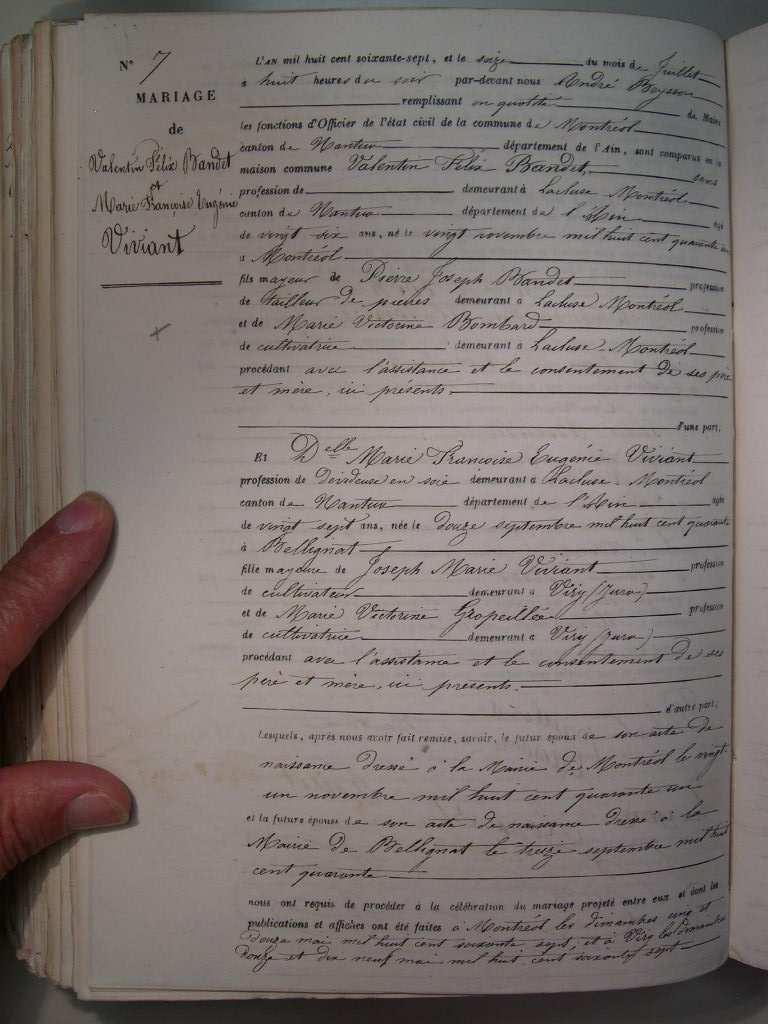 N° 7
MARIAGE
de
Valentin Félix Bandet
et
Marie Françoise Eugénie
Viviant
L'AN mil huit cent soixante-sept, et le seize du mois de Juillet
à huit heures du soir par-devant nous André
remplissant en qualité de Maire
les fonctions d'Officier de l'état civil de la commune de Montréal
canton de Nantua département de l'Ain, sont comparus en la
maison commune Valentin Félix Bandet,
profession de demeurant à Lacluse Montréal
canton de Nantua département de l'Ain âgé
de vingt six ans, né le vingt novembre mil huit cent quarante un
à Montréal
fils majeur de Pierre Joseph Bandet profession
de tailleur de pierres demeurant à Lacluse Montréal
et de Marie Victorine Bombard profession
de cultivatrice demeurant à Lacluse Montréal
procédant avec l'assistance et le consentement de ses père
et mère, ici présents.
d'une part;
Et Delle Marie Francoise Eugénie Viviant
profession de Dévideuse en soie demeurant à Lacluse Montréal
canton de Nantua département de l'Ain âgée
de vingt sept ans, née le douze septembre mil huit cent quarante
à Bellignat
fille majeure de Joseph Marie Viviant profession
de cultivateur demeurant à Viry (Jura)
et de Marie Victorine profession
de cultivatrice demeurant à Viry (Jura)
procédant avec l'assistance et le consentement de ses
père et mère, ici présents.
d'autre part;
Lesquels, après nous avoir fait remise, savoir, le futur époux de son acte de
naissance dressé à la Mairie de Montréal le vingt
un novembre mil huit cent quarante un
et la future épouse de son acte de naissance dressé à la
Mairie de Bellignat le treize septembre mil huit
cent quarante
nous ont requis de procéder à la célébration du mariage projeté entre eux et dont les
publications et affiches ont été faites à Montréal les dimanches cinq et
douze mai mil huit cent soixante sept, et à Viry les dimanches
douze et dix neuf mai mil huit cent soixante sept